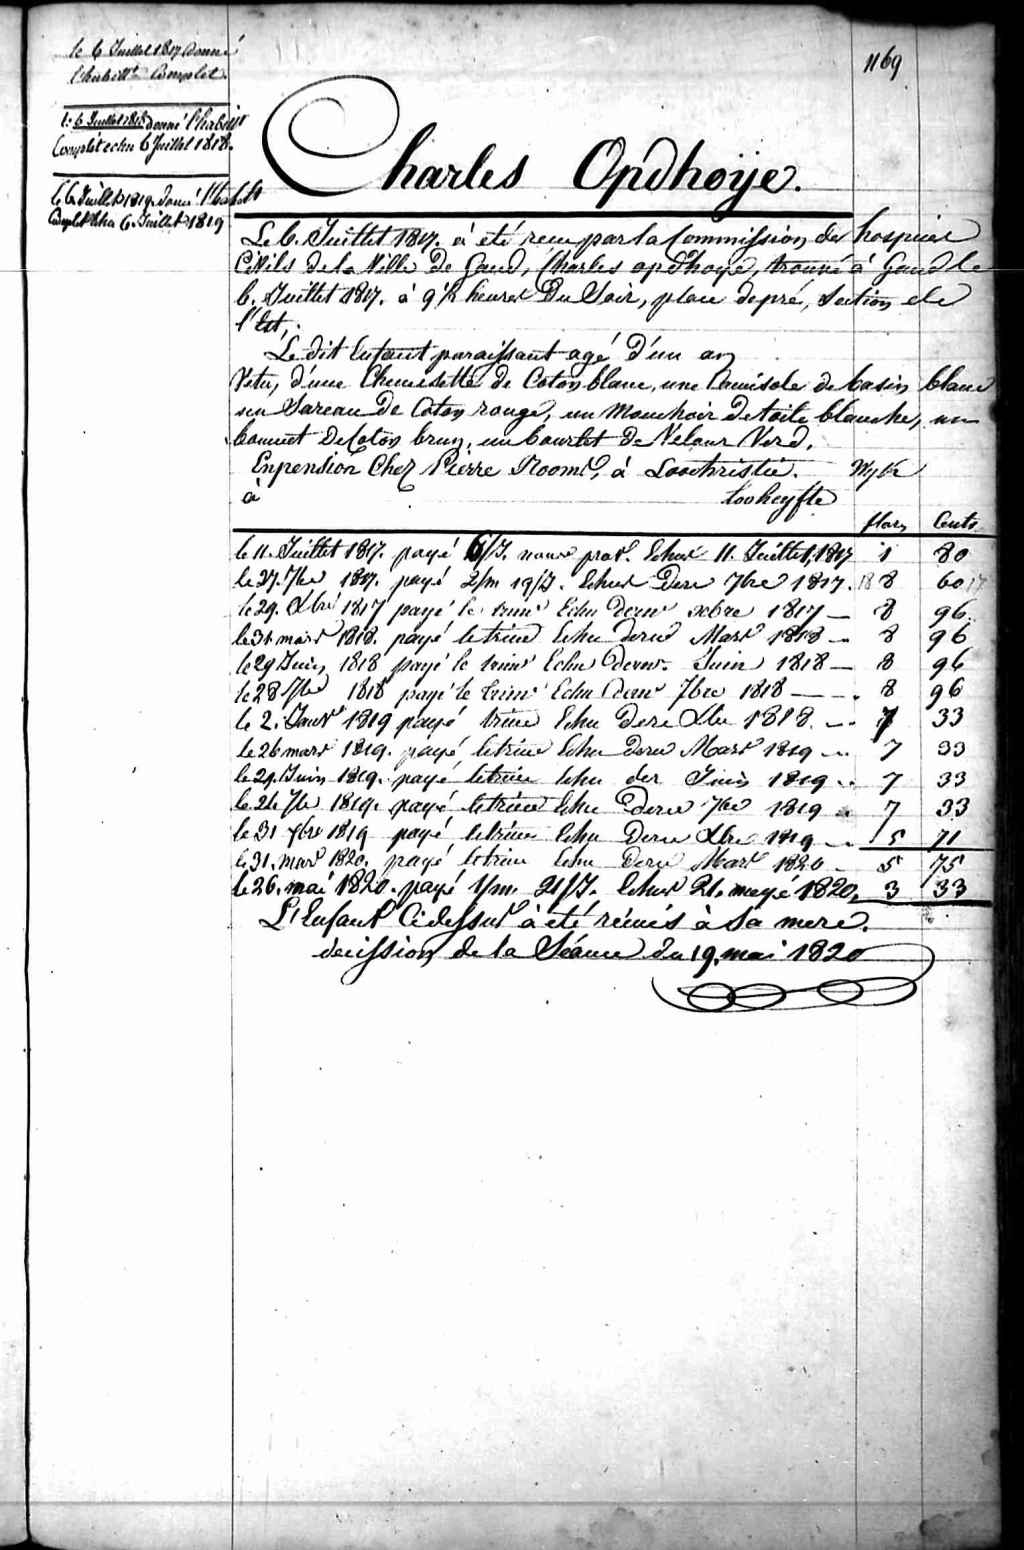 1169
le 6 Juillet 1817 donné
l'habillt Complet.
le 6 Juillet 1818 donné l'habillt
Complet echu 6 Juillet 1818.
le 6 Juillet 1819 donné l'habillt
Complet echu 6 Juillet 1819
Charles Opdhoije.
Le 6. Juillet 1817. à été recu par la Commission des hospices
Civils de la Ville de Gand, Charles opdhoye, trouvé à Gand le
6. Juillet 1817. à 9½ heures Du Soir, place depré, Section de
l'Est,
Le dit Enfant paraissant agé D'un an
Vetu, d'une Chemisette de Coton blanc, une Camisole de basin blanc
un Sareau De Coton rouge, un Mouchoir de toile blanche, un
bonnet De Coton brun, un bourlet De Velour Verd.
En pension Chez Pierre à Loochristie. Wyk
à Looheyfte
flor Cents
le 11. Juillet 1817. payé 6/J. nouv Echus 11. Juillet 1817 1 80
le 27. 7bre 1817. payé 2/m 19/J. Echus Dere 7bre 1817. 8 60
le 29. Xbre 1817 payé le trim Echu Dern xbre 1817 — 8 96
le 31 mars 1818. payé le trim Echu dern Mars 1818 — 8 96
le 29 Juin 1818 payé le trim Echu Dern. Juin 1818 — 8 96
le 28 7bre 1818 payé le trim Echu Dern 7bre 1818 — 8 96
le 2. Janv 1819 payé trim Echu Dere Xbre 1818 — 7 33
le 26 mars 1819. payé le trim Echu Dern Mars 1819 — 7 33
le 29. Juin 1819. payé le trim Echu der Juin 1819 — 7 33
le 26 7bre 1819. payé le trim Echu Dern 7bre 1819 — 7 33
le 31 xbre 1819 payé le trim Echu Dern Xbre 1819 — 5 71
le 31. mars 1820. payé le trim Echu Dern Mars 1820 — 5 75
le 26. mai 1820. payé 1/m 21/J. Echus 21. 1820. 3 33
L'Enfant Cidessus à été rémis à Sa mere.
decission de la Séance du 19. mai 1820